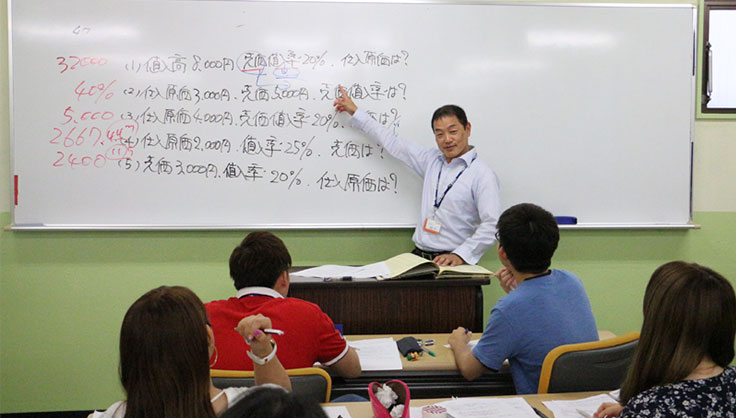 32000 (1) 値入高 8,000円 売価値入率・20%、仕入原価は?
40% (2) 仕入原価3,000円、売価5,000円、売価値入率は?
5,000 (3) 仕入原価4,000円、売価値入率・20%、売価は?
2667 (4) 仕入原価2,000円、値入率・25%、売価は?
2400 (5) 売価3,000円、値入率・20%、仕入原価は?